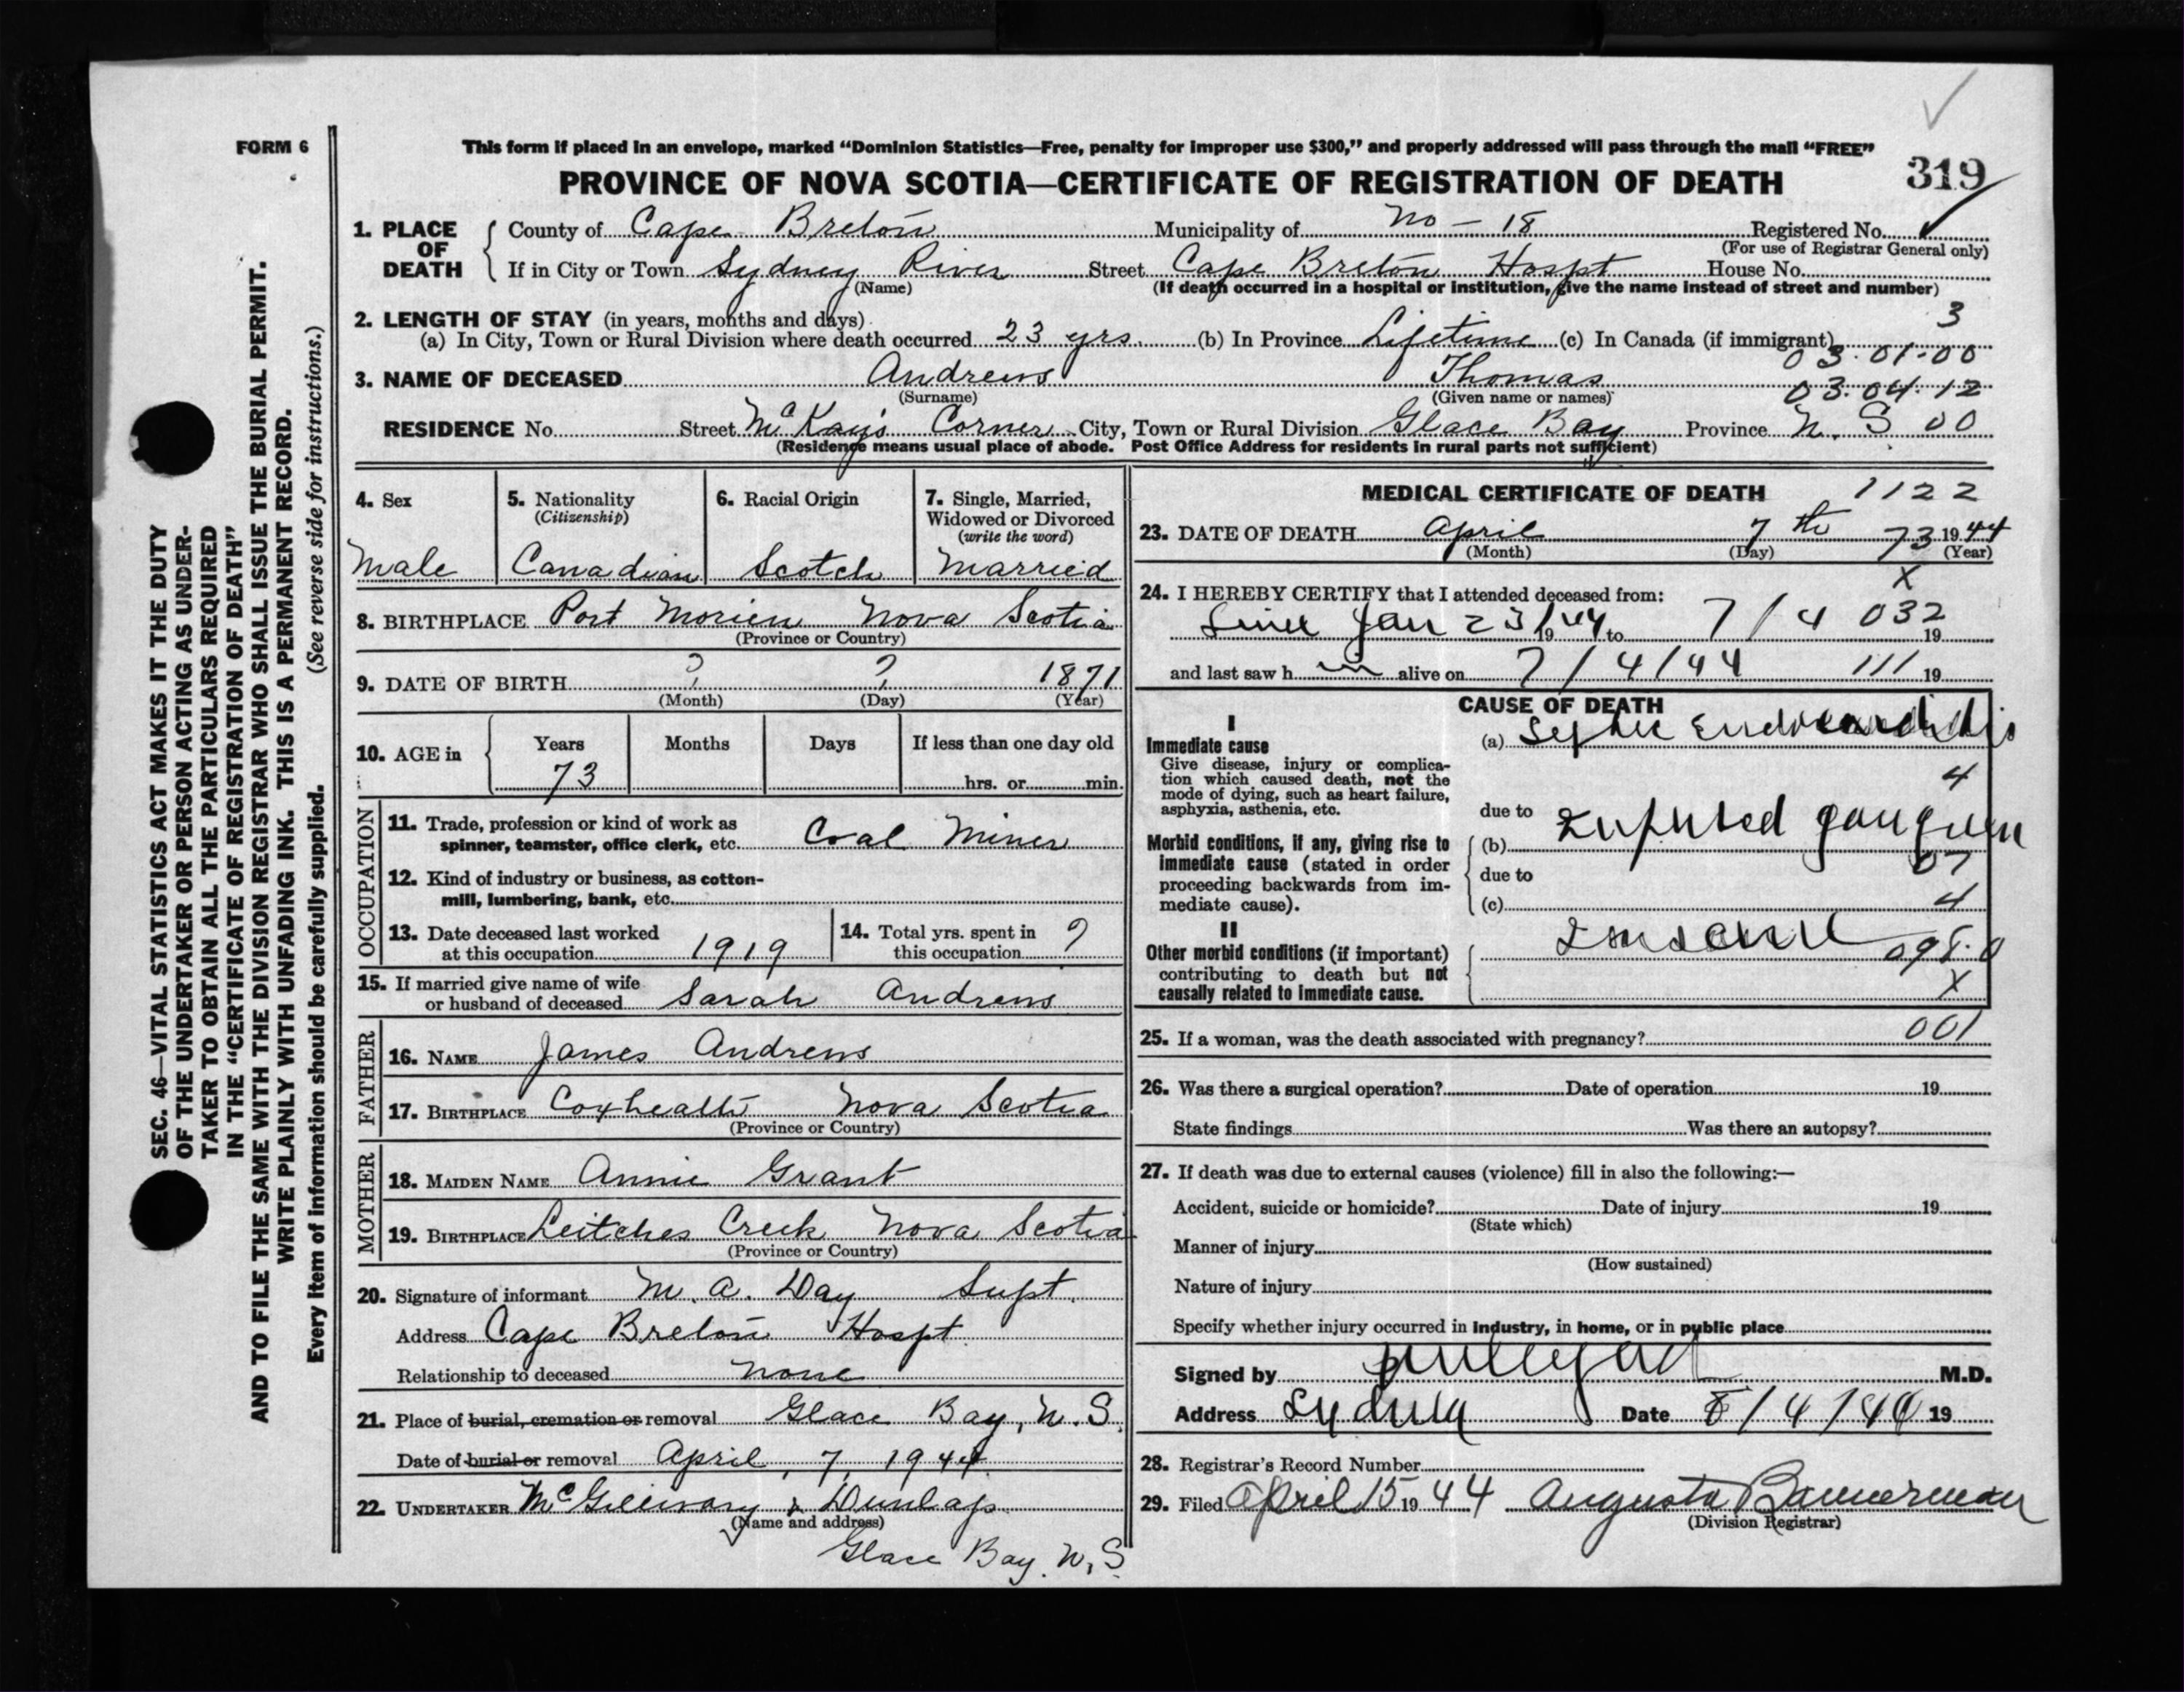 FORM 6
This form if placed in an envelope, marked “Dominion Statistics—Free, penalty for improper use $300,” and properly addressed will pass through the mail “FREE”
PROVINCE OF NOVA SCOTIA—CERTIFICATE OF REGISTRATION OF DEATH 319
SEC. 46—VITAL STATISTICS ACT MAKES IT THE DUTY
OF THE UNDERTAKER OR PERSON ACTING AS UNDER-
TAKER TO OBTAIN ALL THE PARTICULARS REQUIRED
IN THE “CERTIFICATE OF REGISTRATION OF DEATH”
AND TO FILE THE SAME WITH THE DIVISION REGISTRAR WHO SHALL ISSUE THE BURIAL PERMIT.
WRITE PLAINLY WITH UNFADING INK. THIS IS A PERMANENT RECORD.
Every item of information should be carefully supplied. (See reverse side for instructions.)
1. PLACE OF DEATH County of Cape Breton Municipality of No - 18 Registered No.
(For use of Registrar General only)
If in City or Town Sydney River Street Cape Breton Hospt House No.
(Name) (If death occurred in a hospital or institution, give the name instead of street and number)
2. LENGTH OF STAY (in years, months and days) 3
(a) In City, Town or Rural Division where death occurred 23 yrs. (b) In Province Lifetime (c) In Canada (if immigrant)
03·01-00
3. NAME OF DECEASED Andrews Thomas
(Surname) (Given name or names) 03·04·12
RESIDENCE No. Street McKay's Corner City, Town or Rural Division Glace Bay Province N. S 00
(Residence means usual place of abode. Post Office Address for residents in rural parts not sufficient)
4. Sex
Male
5. Nationality
(Citizenship)
Canadian
6. Racial Origin
Scotch
7. Single, Married,
Widowed or Divorced
(write the word)
Married
8. BIRTHPLACE Port Morien Nova Scotia
(Province or Country)
9. DATE OF BIRTH ? ? 1871
(Month) (Day) (Year)
10. AGE in Years Months Days If less than one day old
73 hrs. or min.
OCCUPATION
11. Trade, profession or kind of work as
spinner, teamster, office clerk, etc. Coal Miner
12. Kind of industry or business, as cotton-
mill, lumbering, bank, etc.
13. Date deceased last worked
at this occupation 1919
14. Total yrs. spent in
this occupation ?
15. If married give name of wife
or husband of deceased Sarah Andrews
FATHER
16. NAME James Andrews
17. BIRTHPLACE Coxheath Nova Scotia
(Province or Country)
MOTHER
18. MAIDEN NAME Annie Grant
19. BIRTHPLACE Leitches Creek Nova Scotia
(Province or Country)
20. Signature of informant M. A. Day Supt.
Address Cape Breton Hospt.
Relationship to deceased none
21. Place of burial, cremation or removal Glace Bay, N. S.
Date of burial or removal April, 7, 1944
22. UNDERTAKER McGillivary & Dunlap
(Name and address)
Glace Bay. N. S.
MEDICAL CERTIFICATE OF DEATH 1122
23. DATE OF DEATH April 7th 73 1944
(Month) (Day) (Year)
x
24. I HEREBY CERTIFY that I attended deceased from:
Since Jan 23/44 19 to 7/4 032 19
and last saw h im alive on 7/4/44 111 19
CAUSE OF DEATH
I
Immediate cause
Give disease, injury or complica-
tion which caused death, not the
mode of dying, such as heart failure,
asphyxia, asthenia, etc.
(a) Septic Endocarditis
4
due to
Morbid conditions, if any, giving rise to
immediate cause (stated in order
proceeding backwards from im-
mediate cause).
(b) gangrene
07
due to
(c) 4
II
Other morbid conditions (if important)
contributing to death but not
causally related to immediate cause.
098.0
X
25. If a woman, was the death associated with pregnancy? 001
26. Was there a surgical operation? Date of operation 19
State findings Was there an autopsy?
27. If death was due to external causes (violence) fill in also the following:—
Accident, suicide or homicide? Date of injury 19
(State which)
Manner of injury
(How sustained)
Nature of injury
Specify whether injury occurred in industry, in home, or in public place
Signed by M.D.
Address Sydney Date 8/4/44 19
28. Registrar's Record Number
29. Filed April 15 1944 Augusta Bannerman
(Division Registrar)